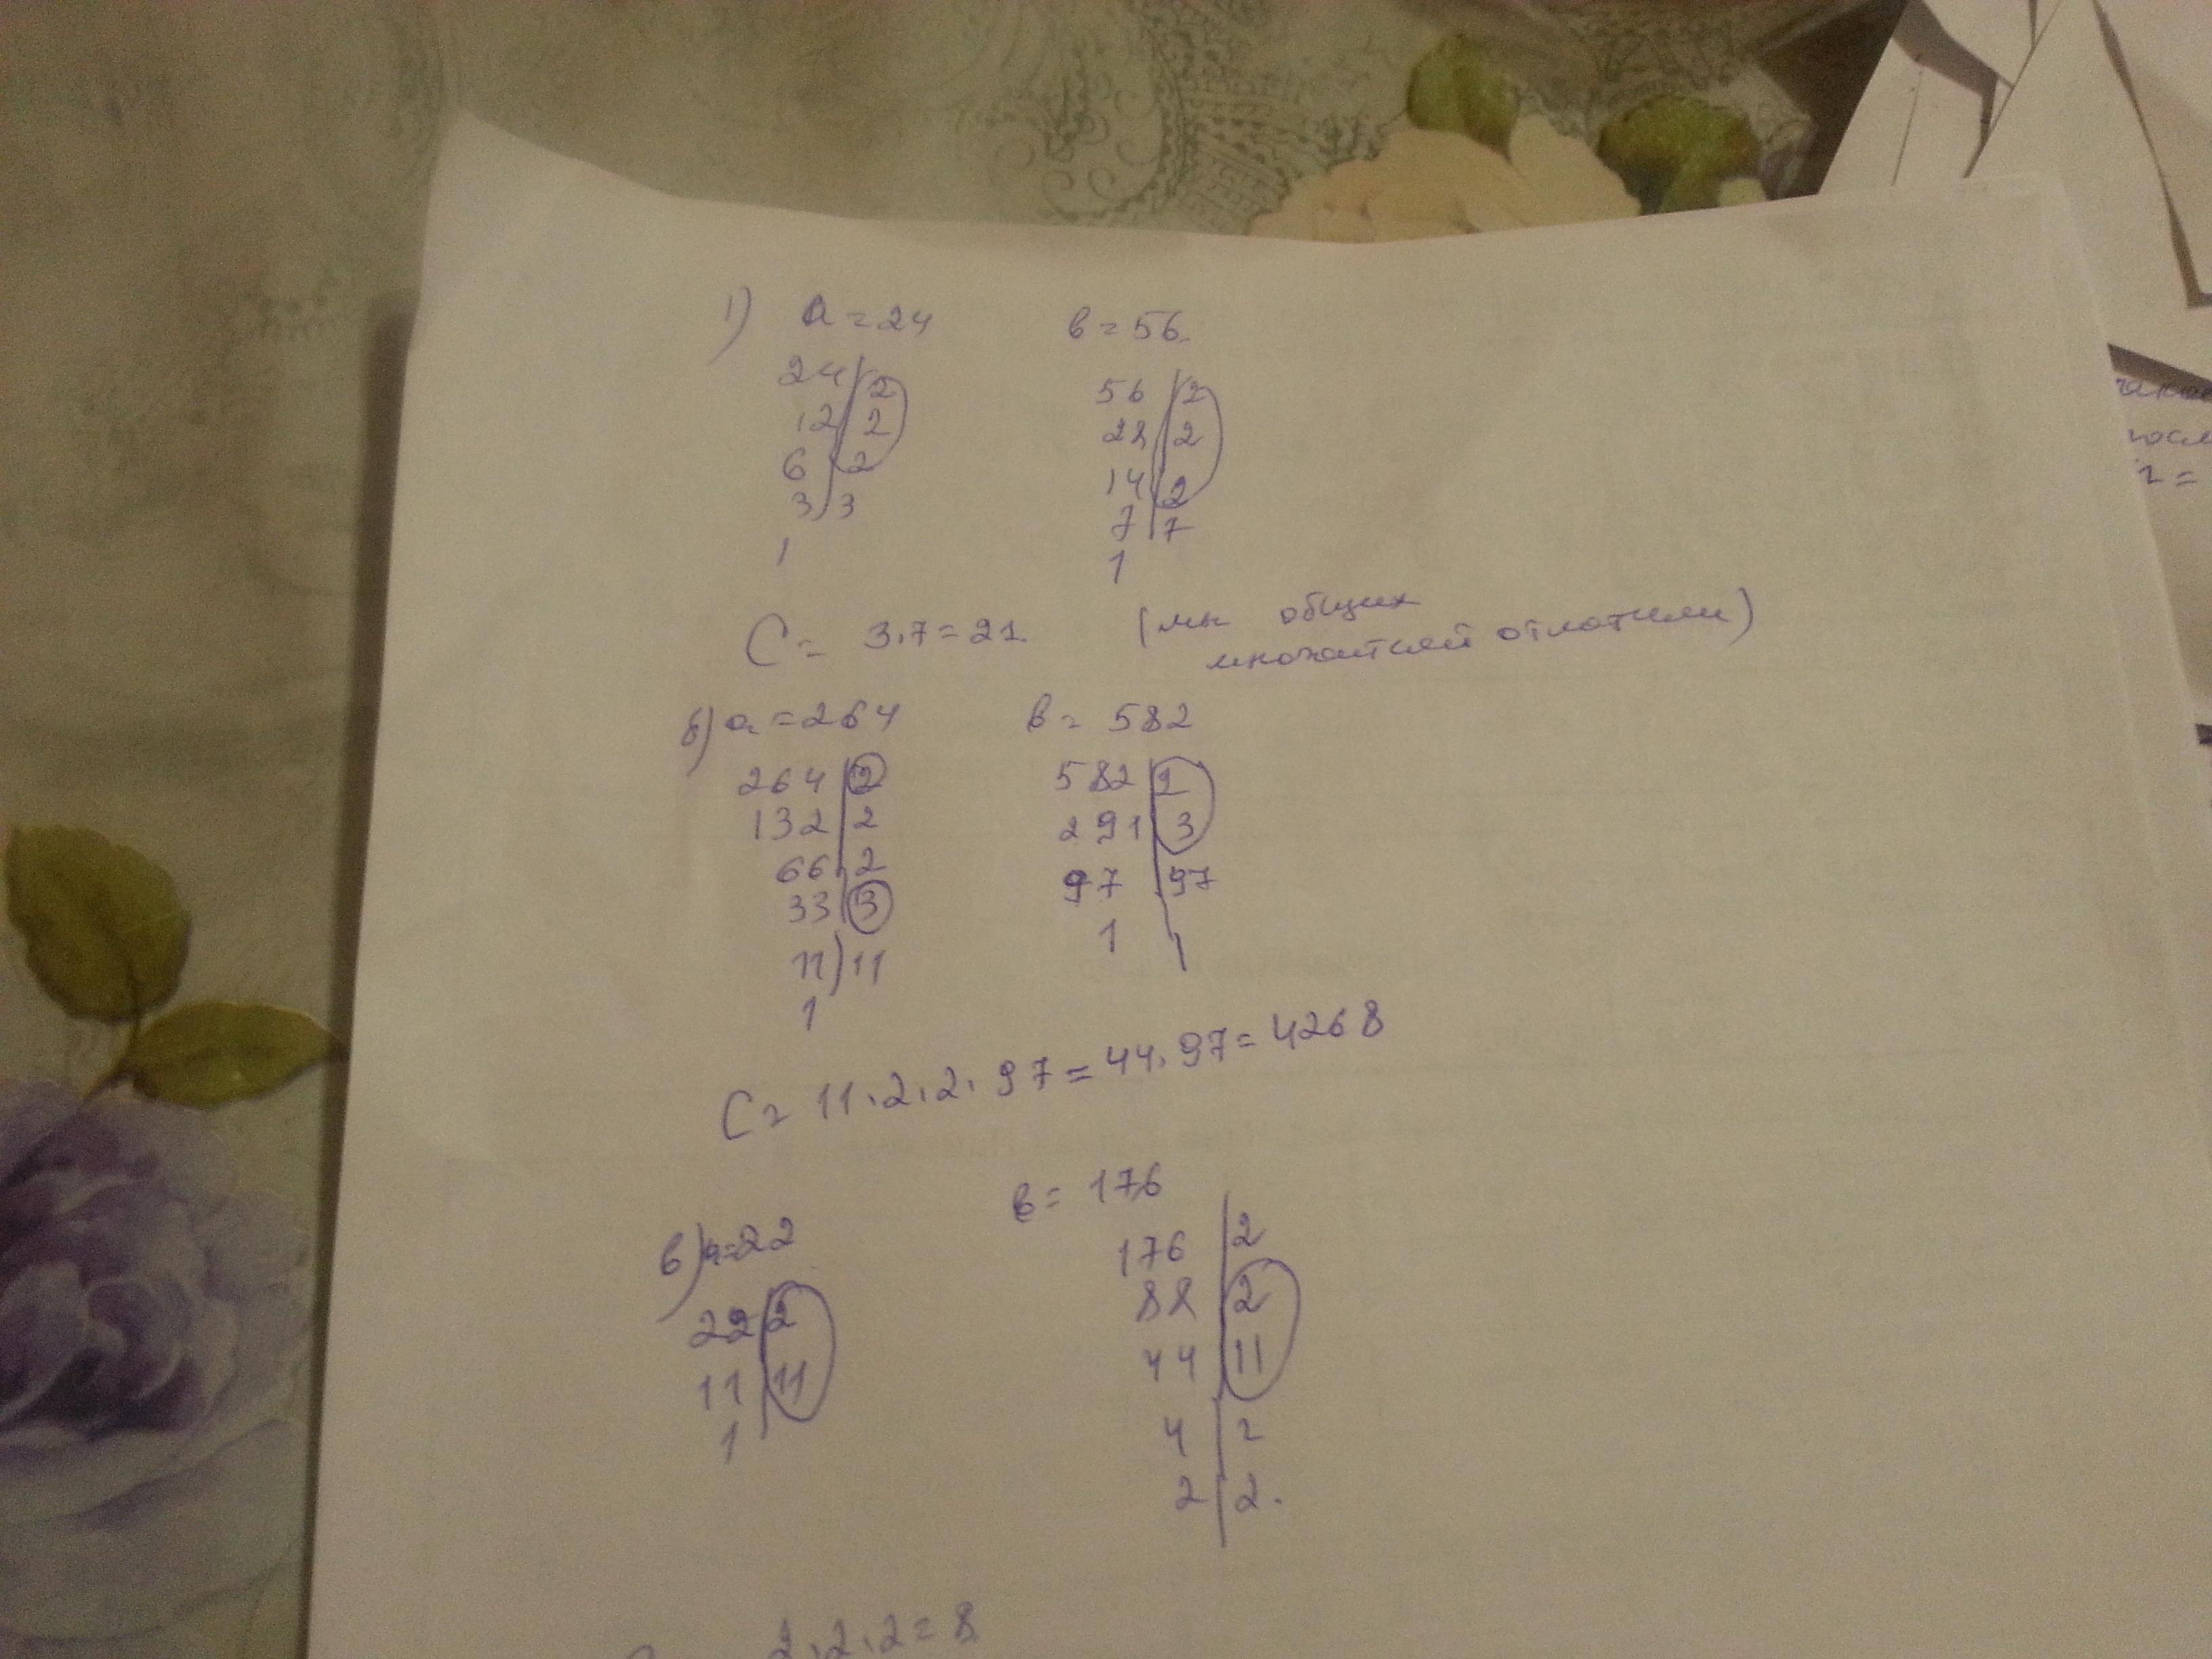 1) a = 24 в = 56
24 | 2 56 | 2
12 | 2 28 | 2
6 | 2 14 | 2
3 | 3 7 | 7
1 1
C = 3·7 = 21 (мы общих
множителей
б) a = 264 в = 582
264 | 2 582 | 2
132 | 2 291 | 3
66 | 2 97 | 97
33 | 3 1
11 | 11
1
C = 11·2·2·97 = 44·97 = 4268
в) a = 22 в = 176
22 | 2 176 | 2
11 | 11 88 | 2
1 44 | 11
4 | 2
2 | 2.
2·2·2 = 8
2 =